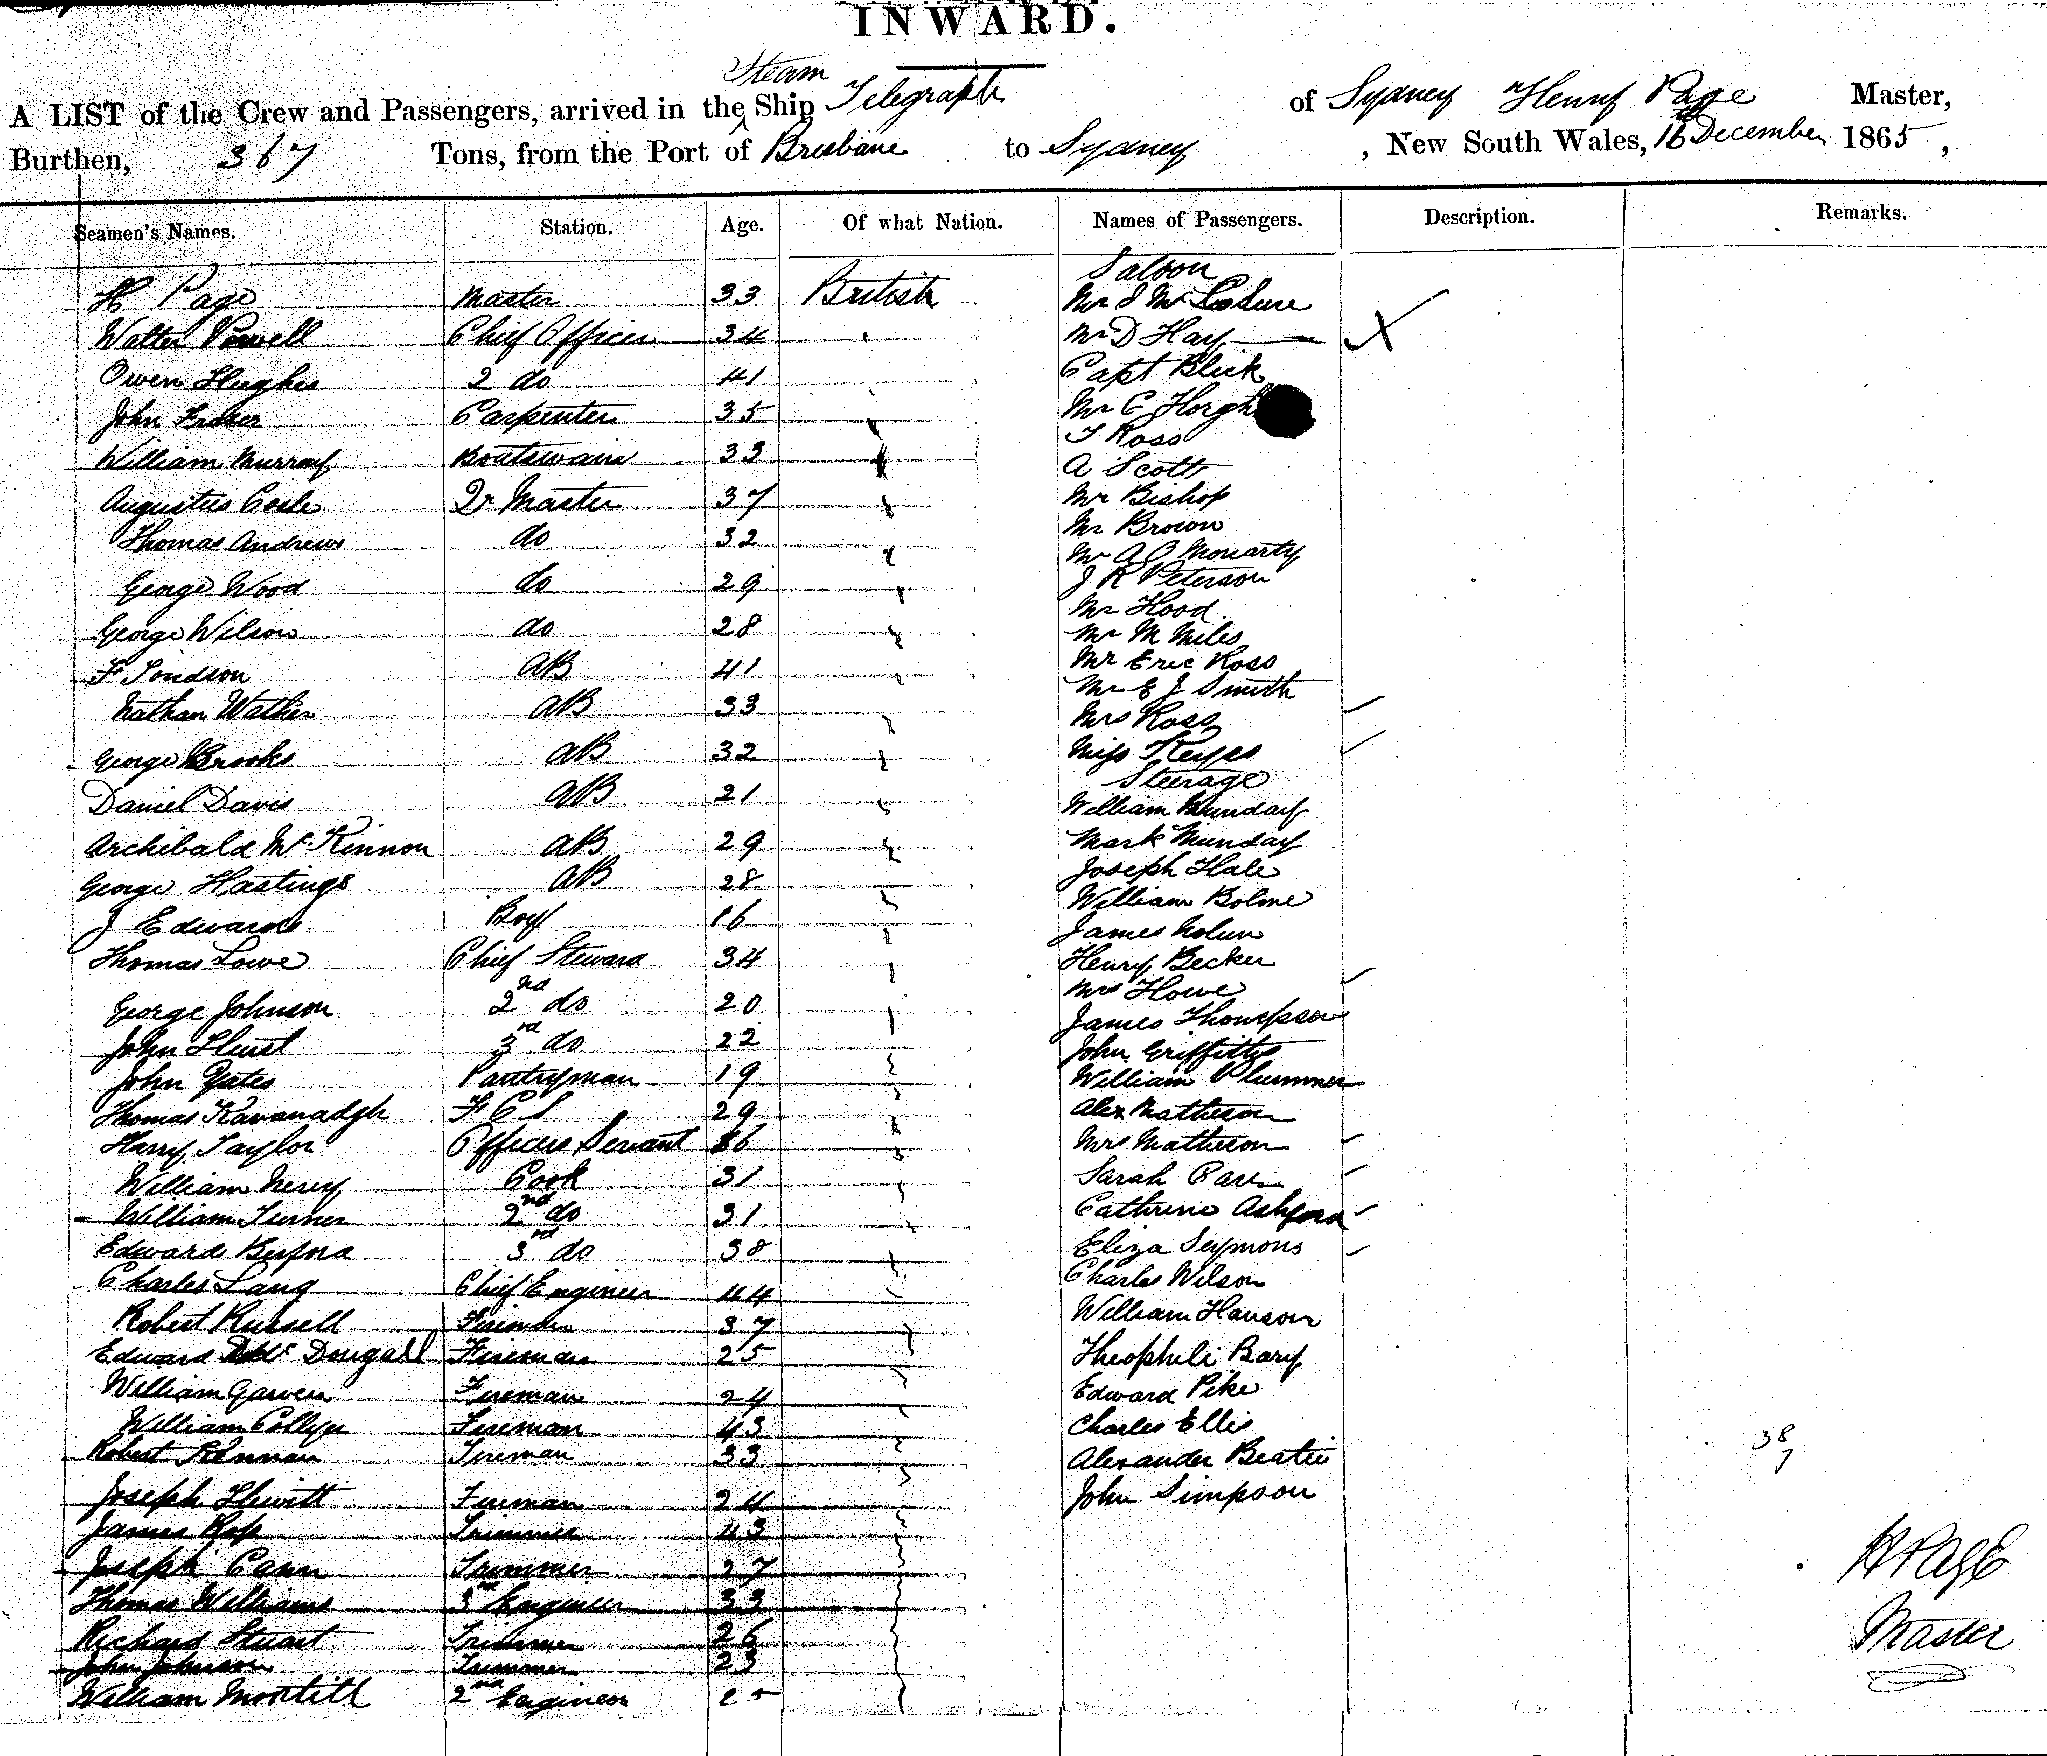 INWARD.
Steam
A LIST of the Crew and Passengers, arrived in the Ship Telegraph of Sydney Henry Page Master,
Burthen, 367 Tons, from the Port of Brisbane to Sydney, New South Wales, 16 December 1865,
Seamen's Names. Station. Age. Of what Nation. Names of Passengers. Description. Remarks.
Saloon
H Page Master 33 British Mr S Mc
Walter Powell Chief Officer 34 Mr D Hay
Owen Hughes 2 do 41 Capt Blick
John Fraser Carpenter 35 Mr C
T Ross
William Murray Boatswain 33
A Scott
Augustus 2r Master 37 Mr Bishop
Mr Brown
Thomas Andrews do 32
Mr A O Moriarty
George Wood do 29 J R Peterson
Mr Hood
George Wilson do 28 Mr M Miles
F AB 41 Mr Eric Ross
Mr E J Smith
Nathan AB 33 Mrs Ross
George Brooks AB 32 Miss Keyes
Steerage
Daniel Davis AB 21 William Munday
Archibald McKinnon AB 29 Mark Munday
George Hastings AB 28 Joseph Hale
William Bolme
J Edwards Boy 16 James Nolun
Thomas Lowe Chief Steward 34 Henry Becker
Mrs Howe
George Johnson 2nd do 20 James Thompson
John Hurst 3rd do 22 John Griffiths
John Yates Pantryman 19 William Plummer
Thomas Kavanadgh F C S 29 Alex Matheson
Harry Taylor Officers Servant Mrs Matheson
William Nerey Cook 31 Sarah
William Turner 2nd do 31 Cathrine Ashford
Edward 3rd do 38 Eliza Seymons
Charles Lang Chief Engineer 44 Charles Wilson
Robert Russell Fireman 37 William Hanson
Edward Mc Dougall Fireman 25 Theophili Bary
William Fireman 24 Edward Pike
William Collyer Fireman 43 Charles Ellis
Robert Fireman 33 Alexander Beattie
38
7
Joseph Hewitt Fireman 24 John Simpson
James Ross Trimmer 43
Joseph Cann Trimmer 27
H PAGE
Thomas Williams 3rd Engineer 33
Richard Stuart Trimmer 26
Master
John Johnson Trimmer 23
William 2nd Engineer 25